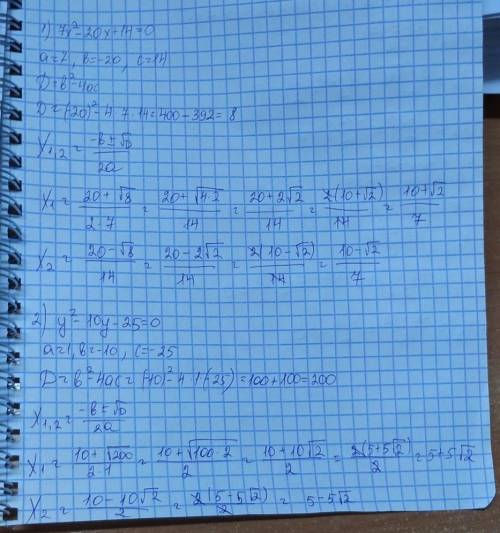 1) 7x²-20x+14=0
a=7, b=-20, c=14
D=b²-4ac
D=(-20)²-4·7·14=400-392=8
X₁,₂ = (-b±√D)/2a
X₁ = (20+√8)/(2·7) = (20+√(4·2))/14 = (20+2√2)/14 = 2(10+√2)/14 = (10+√2)/7
X₂ = (20-√8)/14 = (20-2√2)/14 = 2(10-√2)/14 = (10-√2)/7
2) y²-10y-25=0
a=1, b=-10, c=-25
D=b²-4ac=(-10)²-4·1·(-25)=100+100=200
X₁,₂ = (-b±√D)/2a
X₁ = (10+√200)/(2·1) = (10+√(100·2))/2 = (10+10√2)/2 = 2(5+5√2)/2 = 5+5√2
X₂ = (10-10√2)/2 = 2(5-5√2)/2 = 5-5√2